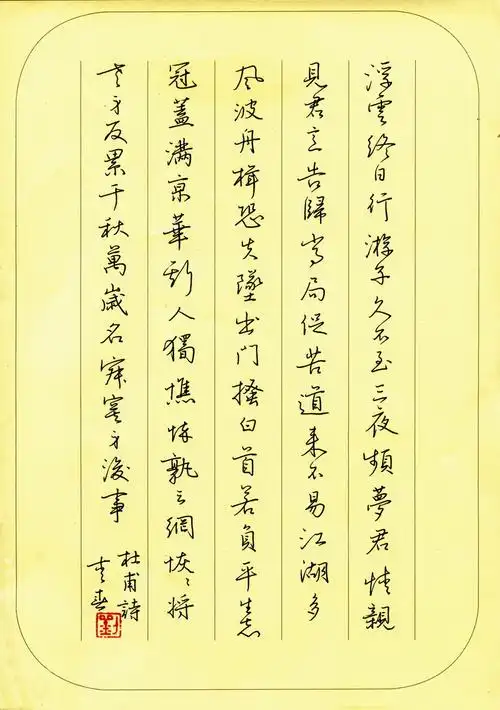 浮雲終日行游子久不至三夜頻夢君情親
見君意告歸常局促苦道來不易江湖多
風波舟楫恐失墜出門搔白首若負平生志
冠蓋滿京華斯人獨憔悴孰云網恢々將
老身反累千秋萬歲名寂寞身後事
杜甫詩
春
劉